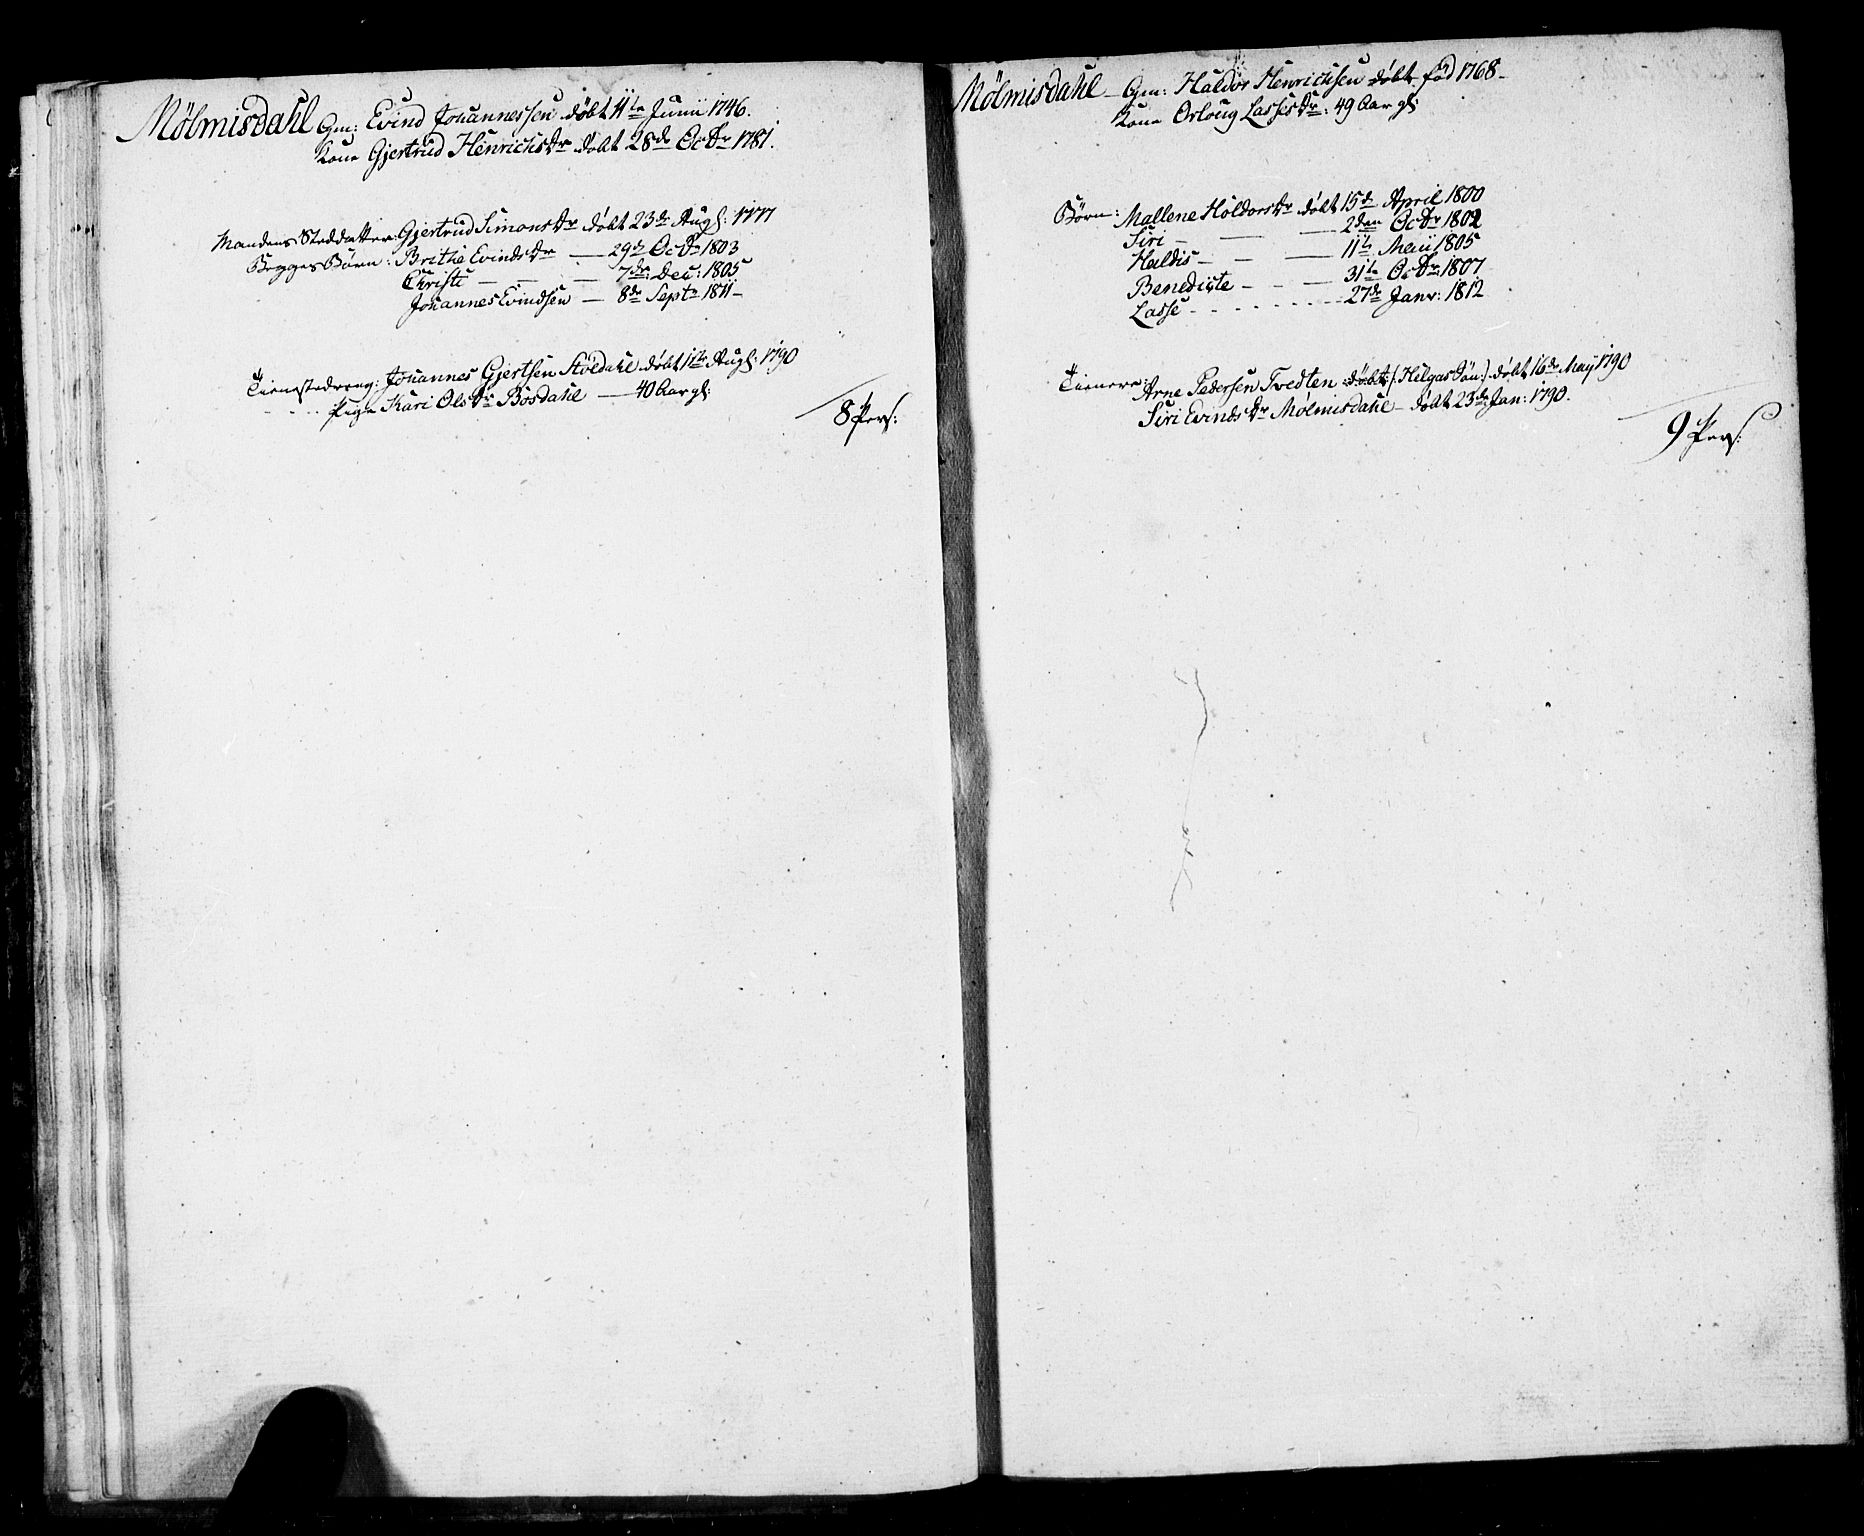 Mølmisdahl Gm: Evind Johannessen døbt 11te Junii 1746.
Kone Gjertrud Henrichsdr døbt 28de Octbr 1781.
Mandens Steddatter: Gjertrud Simonsdr døbt 23de Aug: 1777
Begges Børn: Brithe Evindsdr — 29de Octbr 1803
Christi — — — 7de Dec: 1805
Johannes Evindsen — 8de Septr 1811 -
Tienestedreng: Johannes Gjertsen Støldahl døbt 1ste Aug: 1790
- - - - Pige Kari Olsdr Bøsdahl — 40 Aar gl:
8 Pers:
Mølmisdahl - Gm: Haldor Henrichsen døbt fød 1768 -
Kone Orloug Lassesdr: 49 Aar gl:
Børn: Mallene Holdorsdr døbt 15de April 1800
Siri - — — 2den Octbr 1802
Haldis - - — 11te Maii 1805
Benedicte - - — 31te Octbr 1807
Lasse - - - - - - - 27de Janr: 1812
Tienere: Arne Pedersen Tvedten døbt (: Helgas Søn :) døbt 16de May 1790
Siri Evindsdr Mølmisdahl - døbt 23de Jan: 1790.
9 Pers: